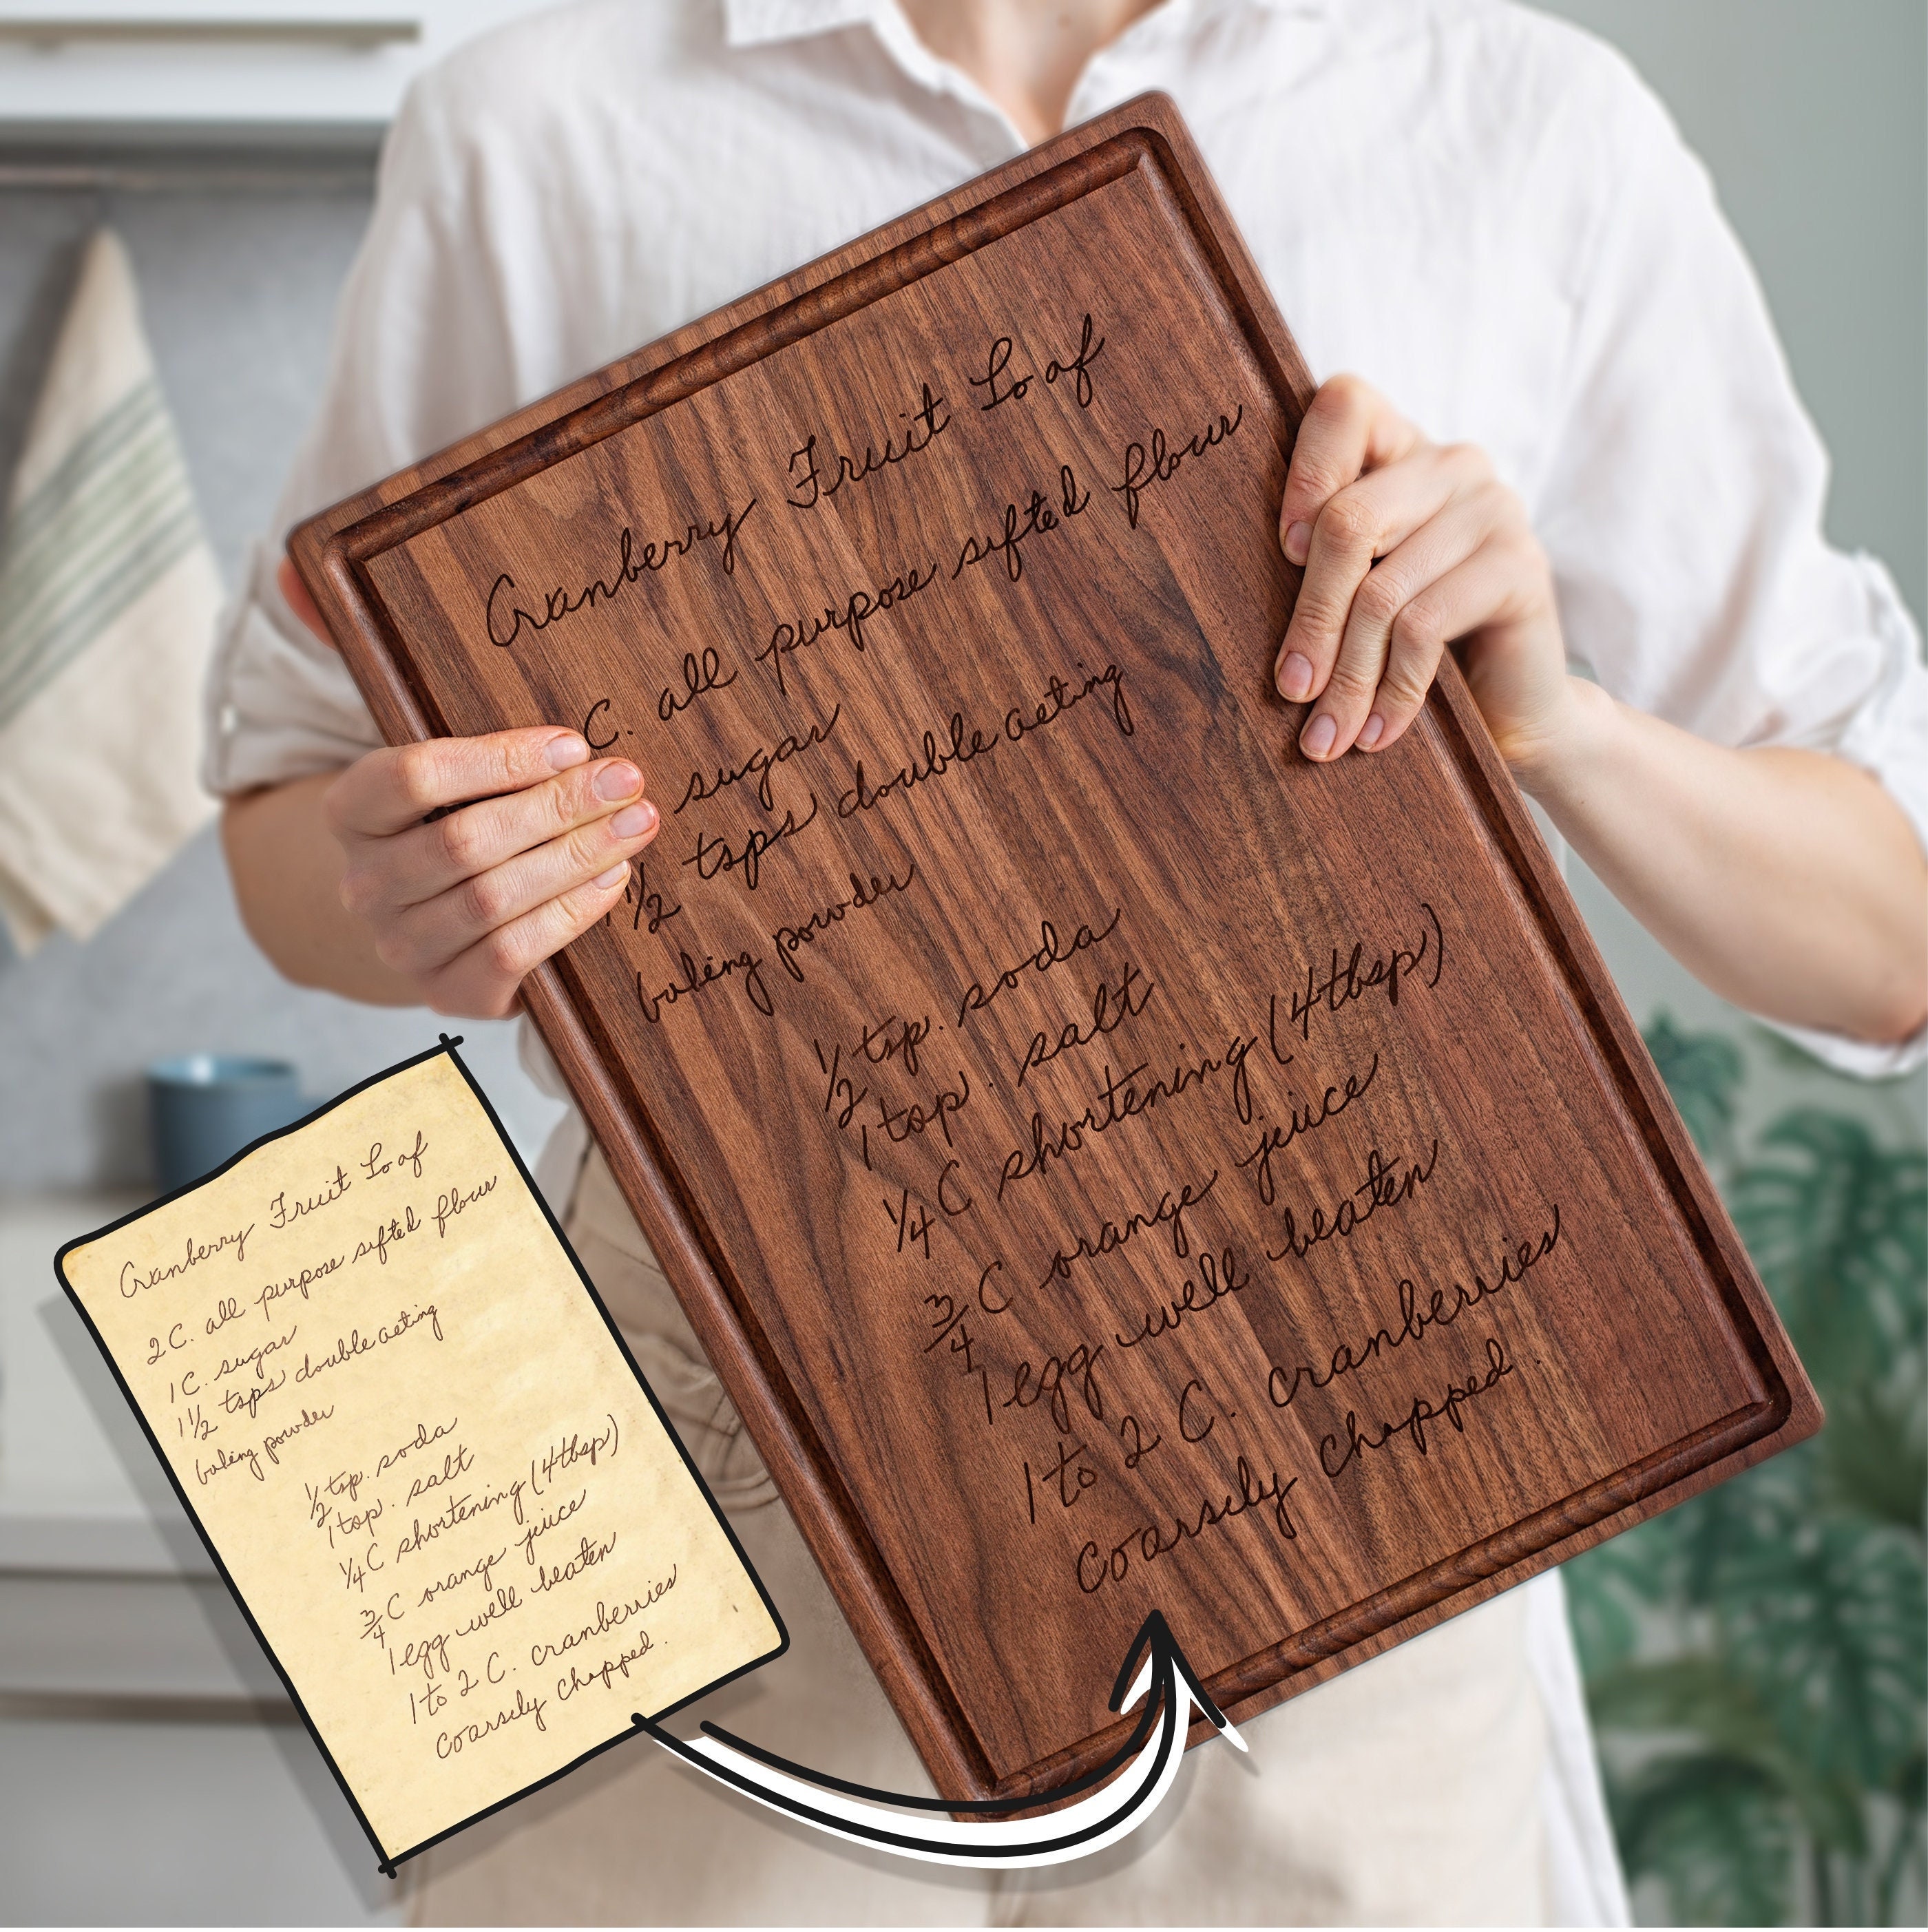 Cranberry Fruit Loaf
C. all purpose sifted flour
sugar
1 1/2 tsps double acting
baking powder
1/2 tsp. soda
1 tsp. salt
1/4 C shortening (4tbsp)
3/4 C orange juice
1 egg well beaten
1 to 2 C. cranberries
Coarsely chopped.
Cranberry Fruit Loaf
2 C. all purpose sifted flour
1 C. sugar
1 1/2 tsps double acting
baking powder
1/2 tsp. soda
1 tsp. salt
1/4 C shortening (4tbsp)
3/4 C orange juice
1 egg well beaten
1 to 2 C. cranberries
Coarsely chopped.